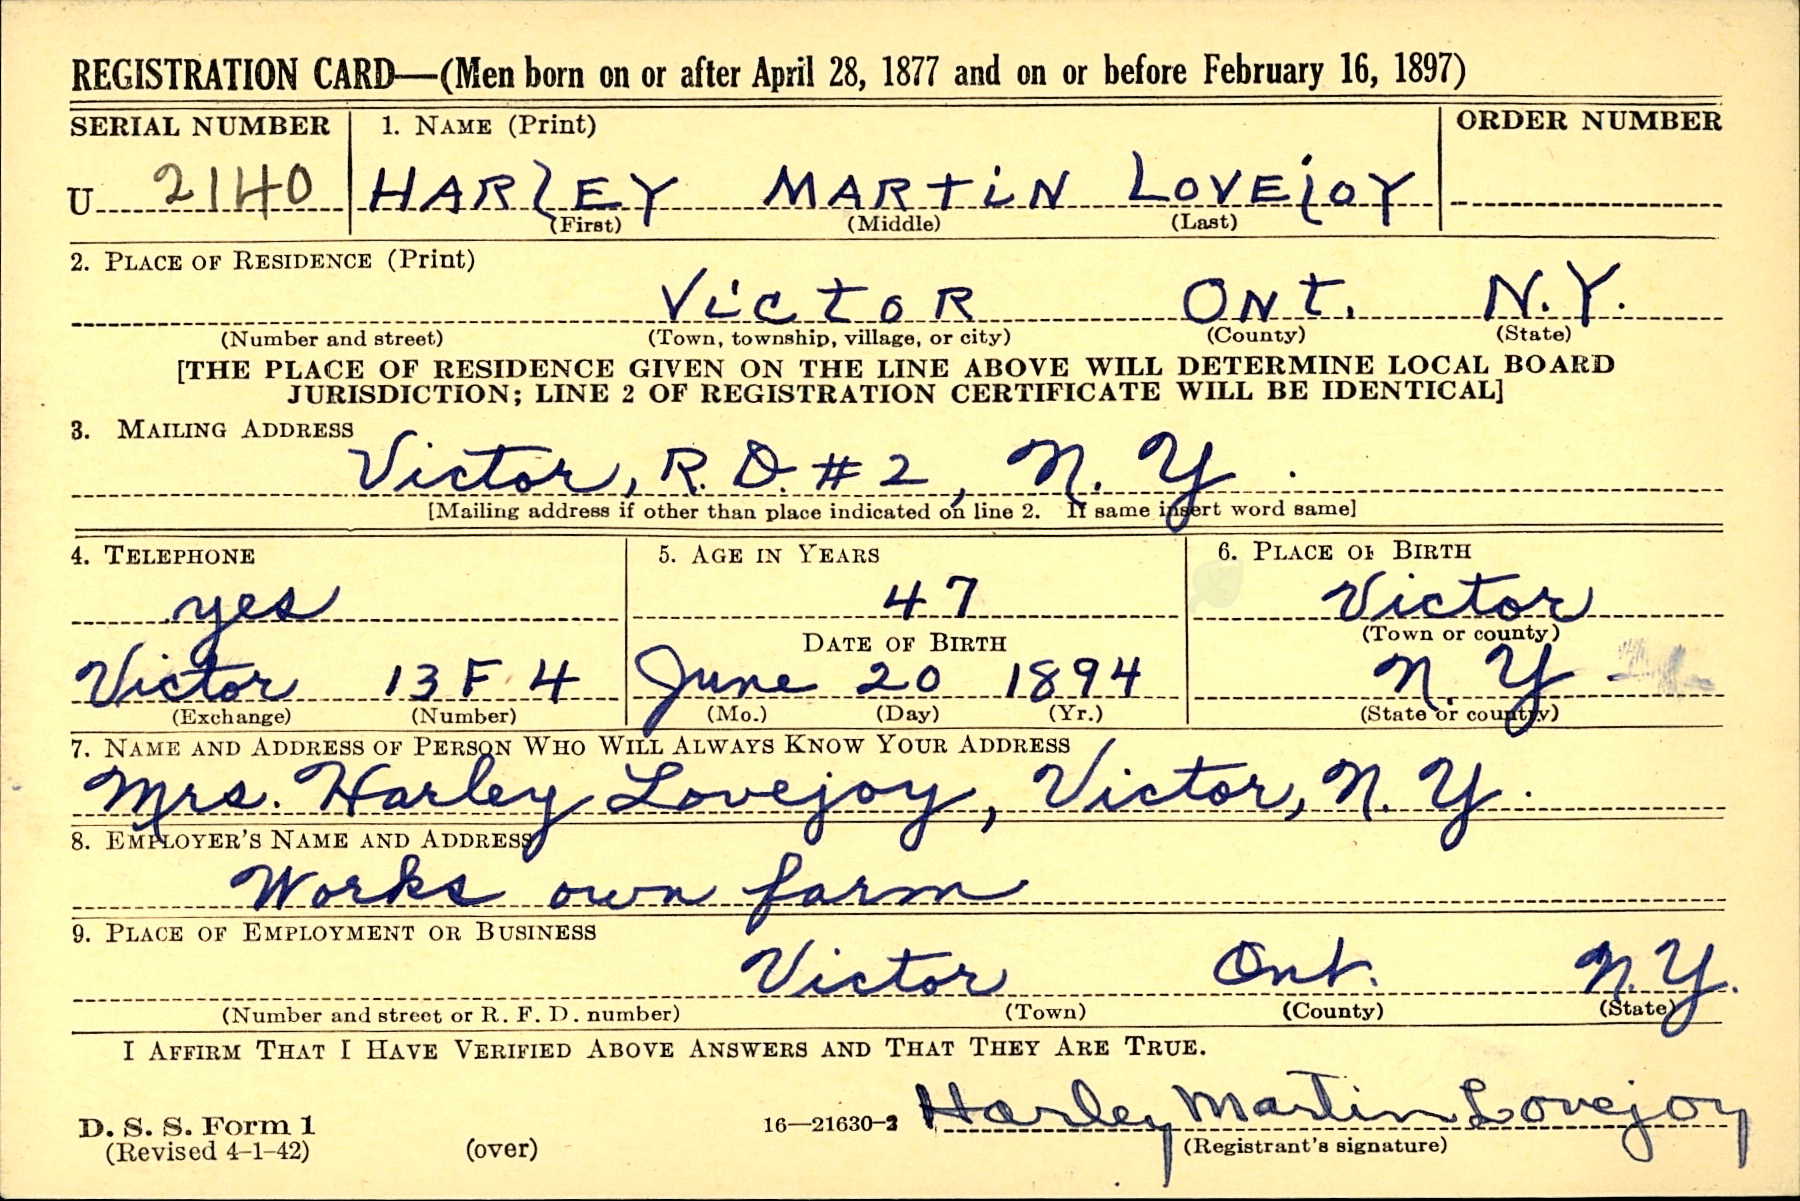 REGISTRATION CARD—(Men born on or after April 28, 1877 and on or before February 16, 1897)
SERIAL NUMBER 1. NAME (Print) ORDER NUMBER
U 2140 HARLEY MARTIN LOVEJOY
(First) (Middle) (Last)
2. PLACE OF RESIDENCE (Print)
VICTOR ONT. N.Y.
(Number and street) (Town, township, village, or city) (County) (State)
[THE PLACE OF RESIDENCE GIVEN ON THE LINE ABOVE WILL DETERMINE LOCAL BOARD
JURISDICTION; LINE 2 OF REGISTRATION CERTIFICATE WILL BE IDENTICAL]
3. MAILING ADDRESS
Victor, R.D. #2, N.Y.
[Mailing address if other than place indicated on line 2. If same insert word same]
4. TELEPHONE 5. AGE IN YEARS 6. PLACE OF BIRTH
yes 47 Victor
DATE OF BIRTH (Town or county)
Victor 13 F 4 June 20 1894 N.Y
(Exchange) (Number) (Mo.) (Day) (Yr.) (State or country)
7. NAME AND ADDRESS OF PERSON WHO WILL ALWAYS KNOW YOUR ADDRESS
Mrs. Harley Lovejoy, Victor, N.Y.
8. EMPLOYER'S NAME AND ADDRESS
Works own farm
9. PLACE OF EMPLOYMENT OR BUSINESS
Victor Ont. N.Y.
(Number and street or R. F. D. number) (Town) (County) (State)
I AFFIRM THAT I HAVE VERIFIED ABOVE ANSWERS AND THAT THEY ARE TRUE.
Harley Martin Lovejoy
D. S. S. Form 1 16—21630-2
(Revised 4-1-42) (over) (Registrant's signature)